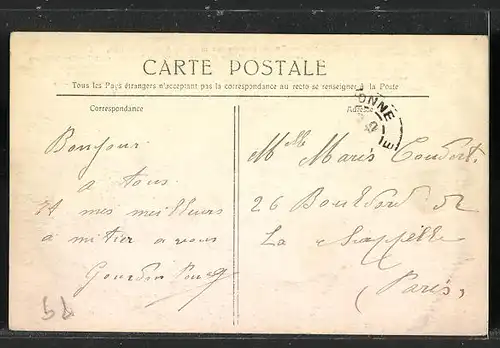 CARTE POSTALE
Tous les Pays étrangers n'acceptant pas la correspondance au recto se renseigner à la Poste
Correspondance
Adresse
ONNE
Bonjour
a tous
mes meilleurs
a mitier a vous
Gourdin
Mlle Marie
26 Boulevard de
La Chappelle
(Paris)